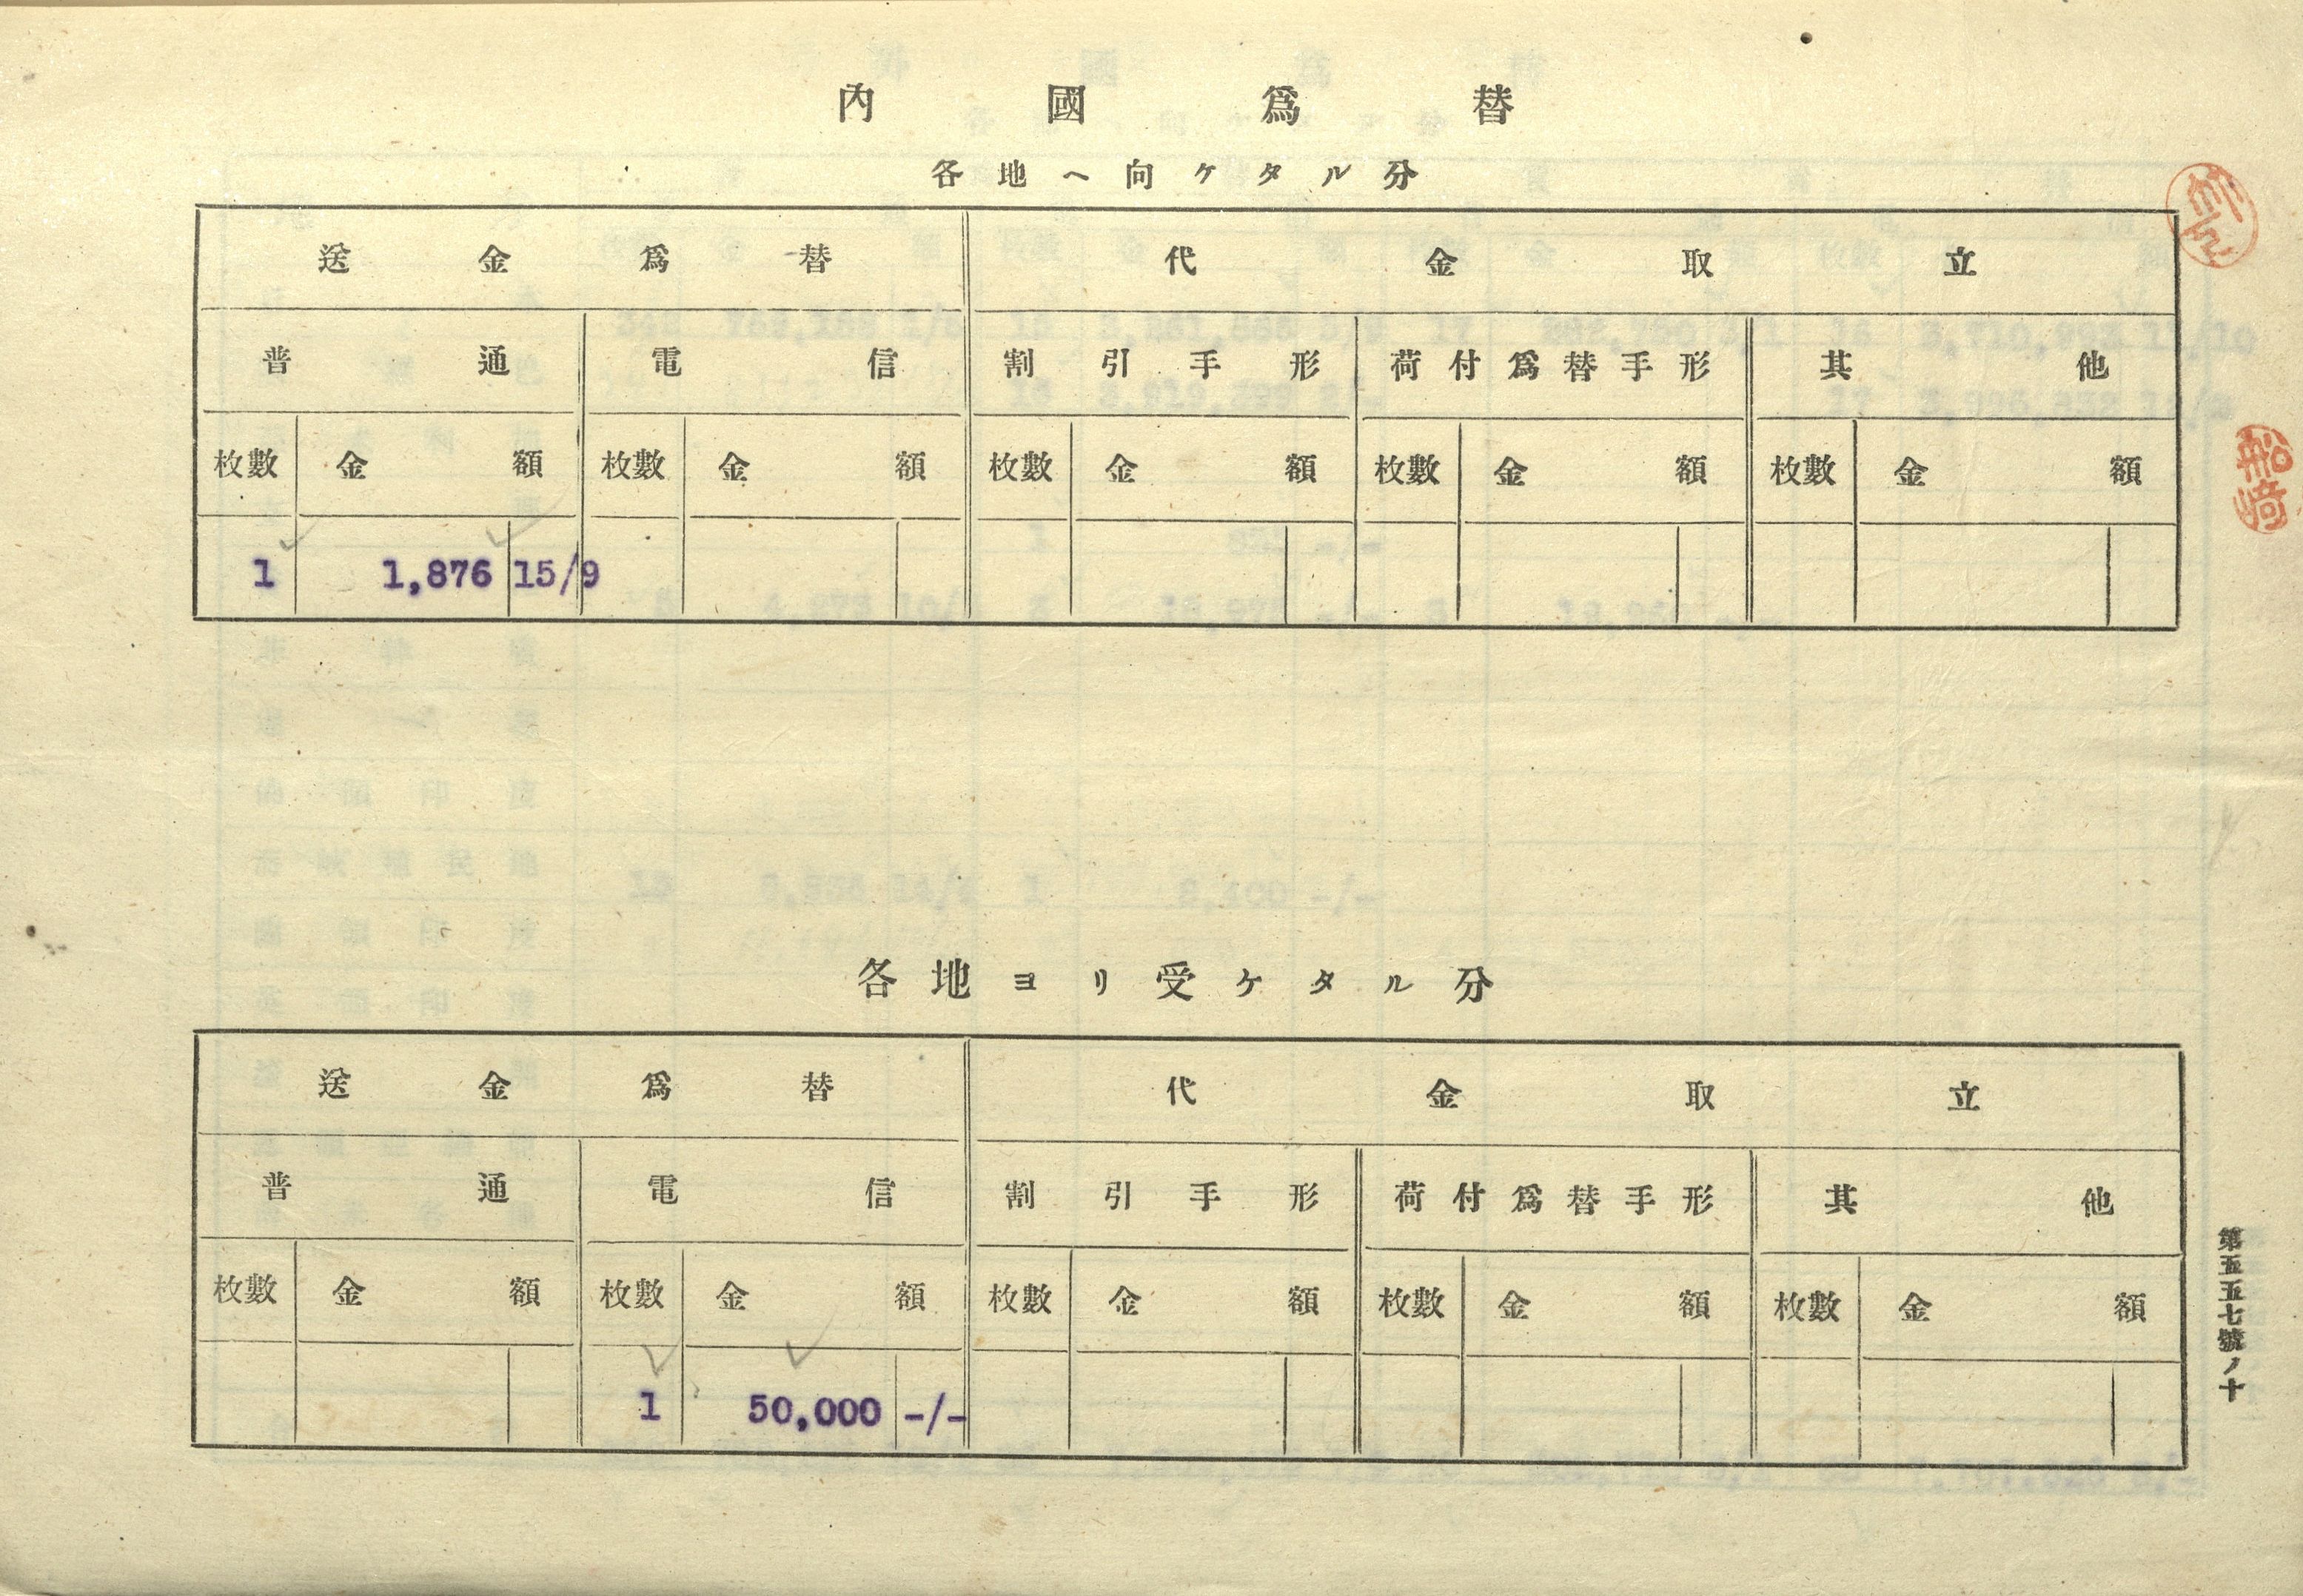 內國爲替
各地ヘ向ケタル分
送金爲替 代金取立
普通 電信 割引手形 荷付爲替手形 其他
枚數 金額 枚數 金額 枚數 金額 枚數 金額 枚數 金額
1 1,876 15/9
各地ヨリ受ケタル分
送金爲替 代金取立
普通 電信 割引手形 荷付爲替手形 其他
枚數 金額 枚數 金額 枚數 金額 枚數 金額 枚數 金額
1 50,000 -/-
第五五七號ノ十
船崎